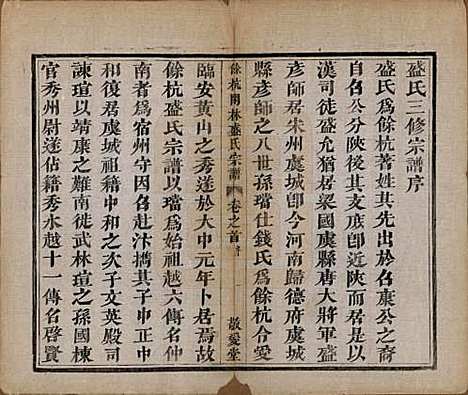 盛氏三修宗譜序
盛氏爲餘杭著姓其先出於召康公之裔
自召公分陝或支於燕或支於盛以國爲氏
漢司徒盛允猶居梁國虞縣唐大將軍盛
彥師居宋州虞城卽今河南歸德府虞城
縣彥師之八世孫璫仕錢氏爲餘杭令愛
餘杭閑林盛氏宗譜 卷之首 序 一 敬愛堂
臨安黃山之秀遂於大中元年卜居焉故
餘杭盛氏宗譜以璫爲始祖越六傳名仲
南者爲宿州守因召赴汴擕其子中正中
和復居虞城祖籍中和之次子文英殿司
諫瑄以靖康之難南徒武林瑄之孫國棟
官秀州尉遂佔籍秀水越十一傳名啓賢